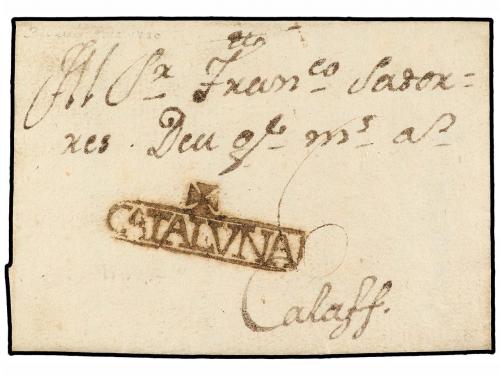 All Sr. Franco Sador=
res. Deu gde ms as
CATALUNA
Calaff.